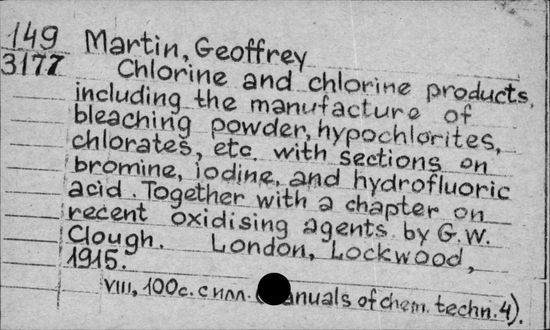 149 Martin, Geoffrey
3177 Chlorine and chlorine products,
including the manufacture of
bleaching powder, hypochlorites,
chlorates, etc. with sections on
bromine, iodine, and hydrofluoric
acid. Together with a chapter on
recent oxidising agents by G.W.
Clough. London, Lockwood,
1915.
VIII, 100c. с илл. anuals of chem. techn. 4).